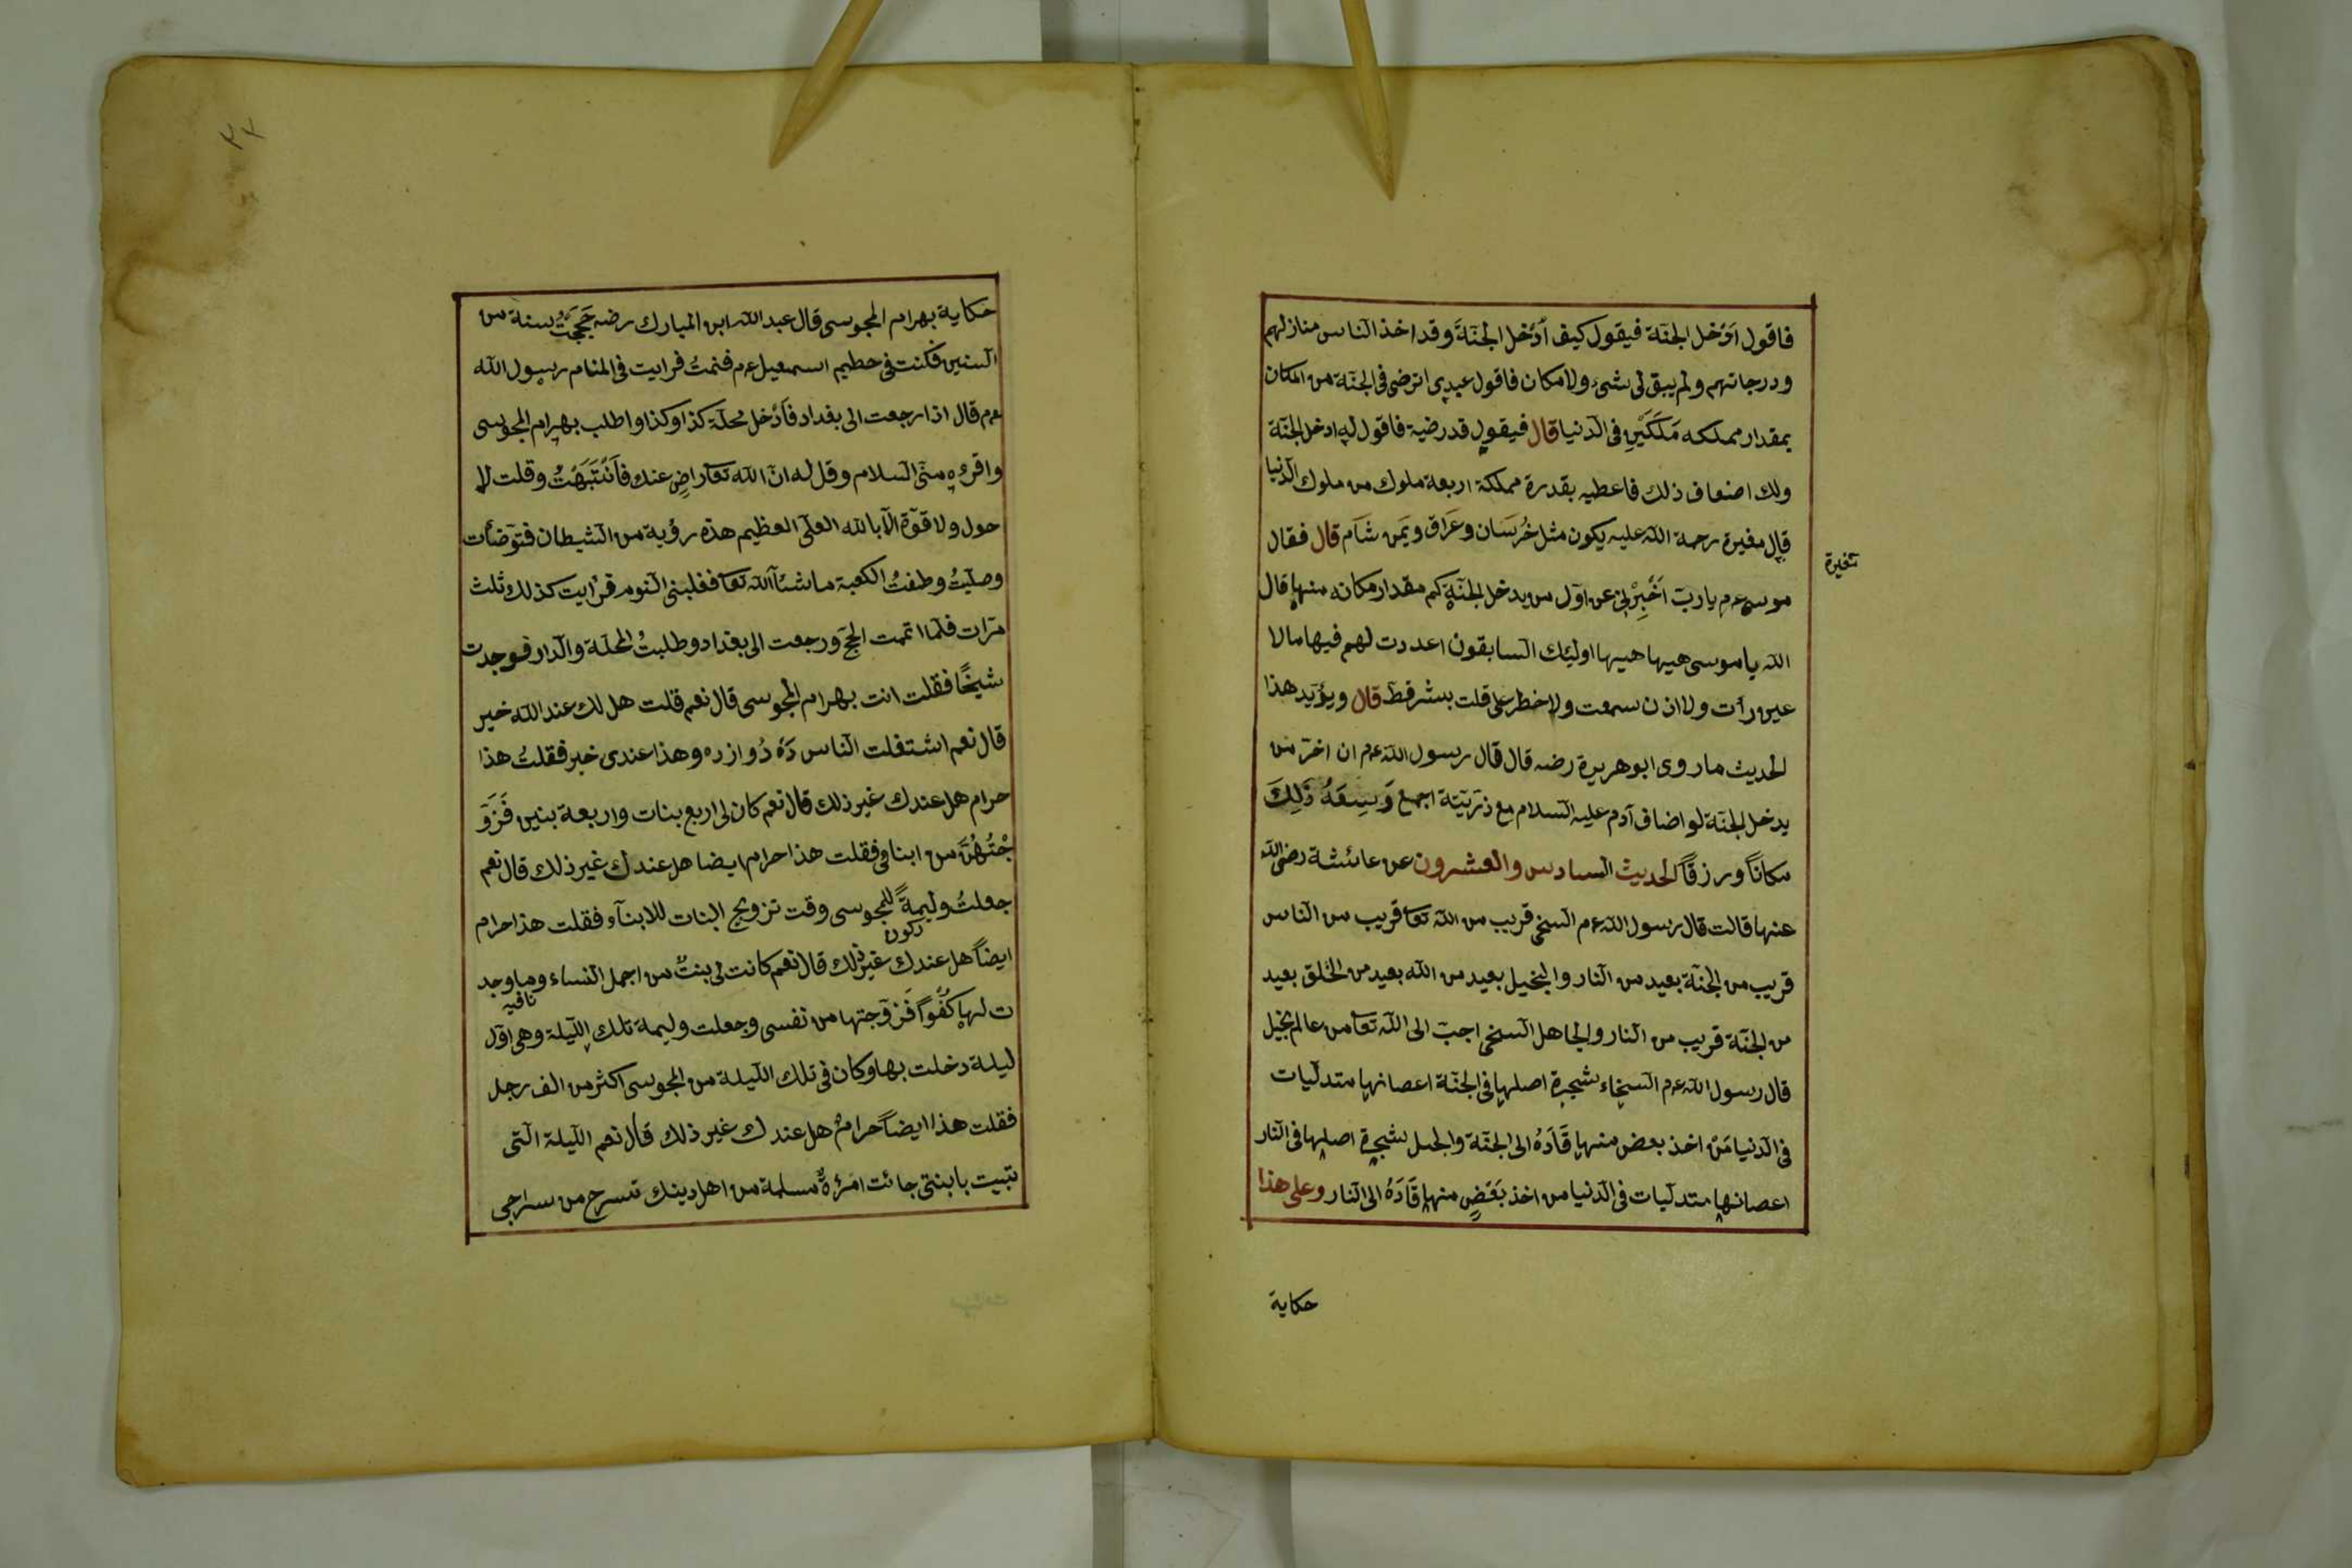 فاقول اُدْخل الجنّة فيقول كيف اُدْخل الجنّةَ وقد اخذ الناس منازلهم
ودرجاتهم ولم يبق لى شىء ولا مكان فاقول عبدى اترضى فى الجنّة من المكان
بمقدار مملكه مَلَكَيْنِ فى الدّنيا قال فيقول قد رضية فاقول له ادخل الجنّة
ولك اضعاف ذلك فاعطيه بقدرة مملكة اربعة ملوك من ملوك الدّنيا
قال مغيرة رحمة الله عليه يكون مثل خُرَسَان وعَراق ويَمن شَام قال فقال
مغيرة
موسى عم يا ربّ اَخْبِرْنِى عن اوّل من يدخل الجنّة كم مقدار مكانه منها قال
الله يا موسى هيها هيها اولئك السّابقون اعددت لهم فيها مالا
عين رأت ولا اذن سمعت ولا خطر على قلت بشر قطّ قال ويؤيد هذا
الحديث ما روى ابو هريرة رضه قال قال رسول الله عم ان اخر من
يدخل الجنّة لو اضاف آدم عليه السّلام مع ذرّيّتة اجمع وَسِعَهُ ذَلِكَ
مكاناً ورزقاً الحديث السادس والعشرون عن عائشة رضى الله
عنها قالت قال رسول الله عم السخى قريب من الله تعا قريب من الناس
قريب من الجنّة بعيد من النار والبخيل بعيد من الله بعيد من الخلق بعيد
من الجنّة قريب من النار والجاهل السخى احبّ الى الله تعا من عالم بخيل
قال رسول الله عم السخاء شجرة اصلها فى الجنّة اعصانها متدلّيات
فى الدّنيا مَنْ اخذ بعض منها قَادَهُ الى الجنّة والبخل شجرة اصلها فى النّار
اعصانها متدلّيات فى الدّنيا من اخذ بَعَضٍ منها قَادَهُ الى النار وعلى هذا
حكاية
حكاية بهرام المجوسى قال عبد الله ابن المبارك رضه حَجَجَتُ سنة من
السنين فكنت فى حطيم اسمعيل عم فنمتُ فرايت فى المنام رسول الله
عم قال اذا رجعت الى بغداد فَأدْخل محلّة كذا وكذا واطلب بهرام المجوسى
واقرءه منّى السّلام وقل له انّ الله تعا راضٍ عنك فَاَنْتَبَهْتُ وقلت لا
حول ولا قوّة الّا بالله العلىّ العظيم هذه رؤية من الشيطان فتوّضأت
وصلّيتُ وطفتُ الكعبة ما شآء الله تعا فغلبنى النوم فرأيت كذلك ثلث
مرّات فلمّا اتممت الحجّ ورجعت الى بغداد وطلبتُ المحلّة والدّار فوجدت
شيخًا فقلت انت بهرام المجوسى قال نعم قلت هل لك عند الله خير
قال نعم اشتغلت النّاس دَهْ دُوازده وهذا عندى خير فقلتُ هذا
حرام هل عندك غير ذلك قال نعم كان لى اربع بنات واربعة بنين فَزَوَّ
جْتُهُنَّ من ابنائى فقلت هذا حرام ايضا هل عندك غير ذلك قال نعم
جعلتُ وليمةً للمجوسى وقت تزويج البنات للابنآء فقلت هذا حرام
ايضاً هل عندك غير ذلك قال نعم كانت لى بنتٌ من اجمل النّساء وما وجد
ت لها كُفْواً فَزوّجتها من نفسى وجعلت وليمة تلك اللّيلة وهى اوّل
ليلة دخلت بها وكان فى تلك اللّيلة من المجوسى اكثر من الف رجل
فقلت هذا ايضاً حرامٌ هل عندك غير ذلك قال نعم اللّيلة الّتى
تبيت بابنتى جائت امرْةٌ مسلمة من اهل دينك تسرج من سراجى